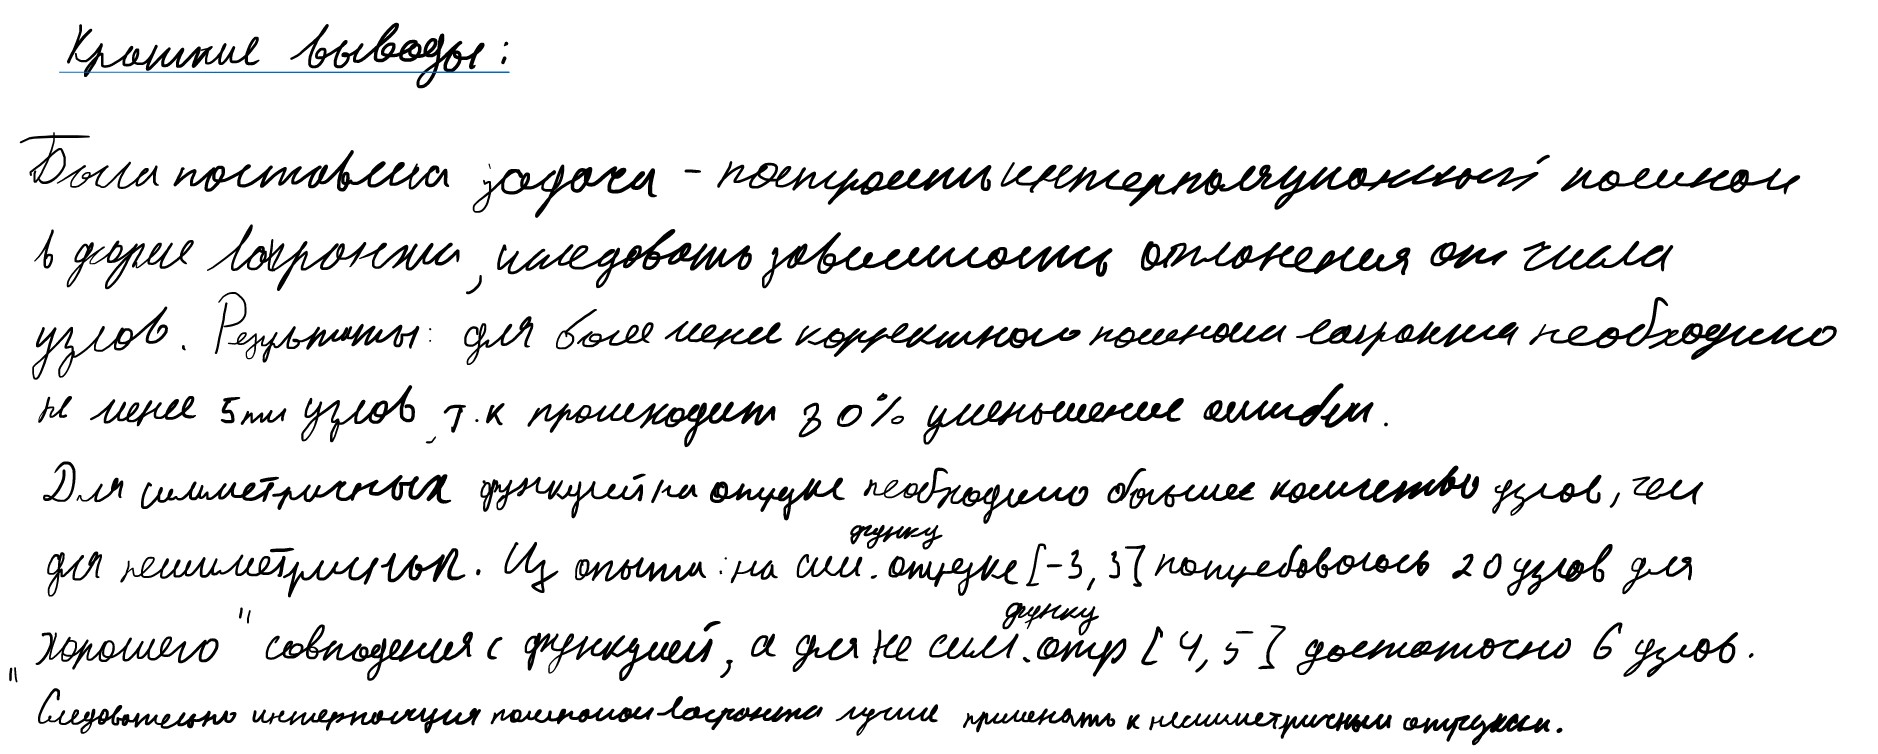 Краткие выводы:
Была поставлена задача - построить интерполяционный полином
в форме Лагранжа, исследовать зависимость отклонения от числа
узлов. Результаты: для более менее корректного полинома лагранжа необходимо
не менее 5ти узлов, т.к происходит 30% уменьшение ошибки.
Для симметричных функций на отрезке необходимо большее количество узлов, чем
функц
для несимметричных. Из опыта: на сим. отрезке [-3, 3] потребовалось 20 узлов для
функц
"хорошего" совпадения с функцией, а для не сим. отр [4, 5] достаточно 6 узлов.
Следовательно интерполяция полиномом Лагранжа лучше применять к несимметричным отрезкам.